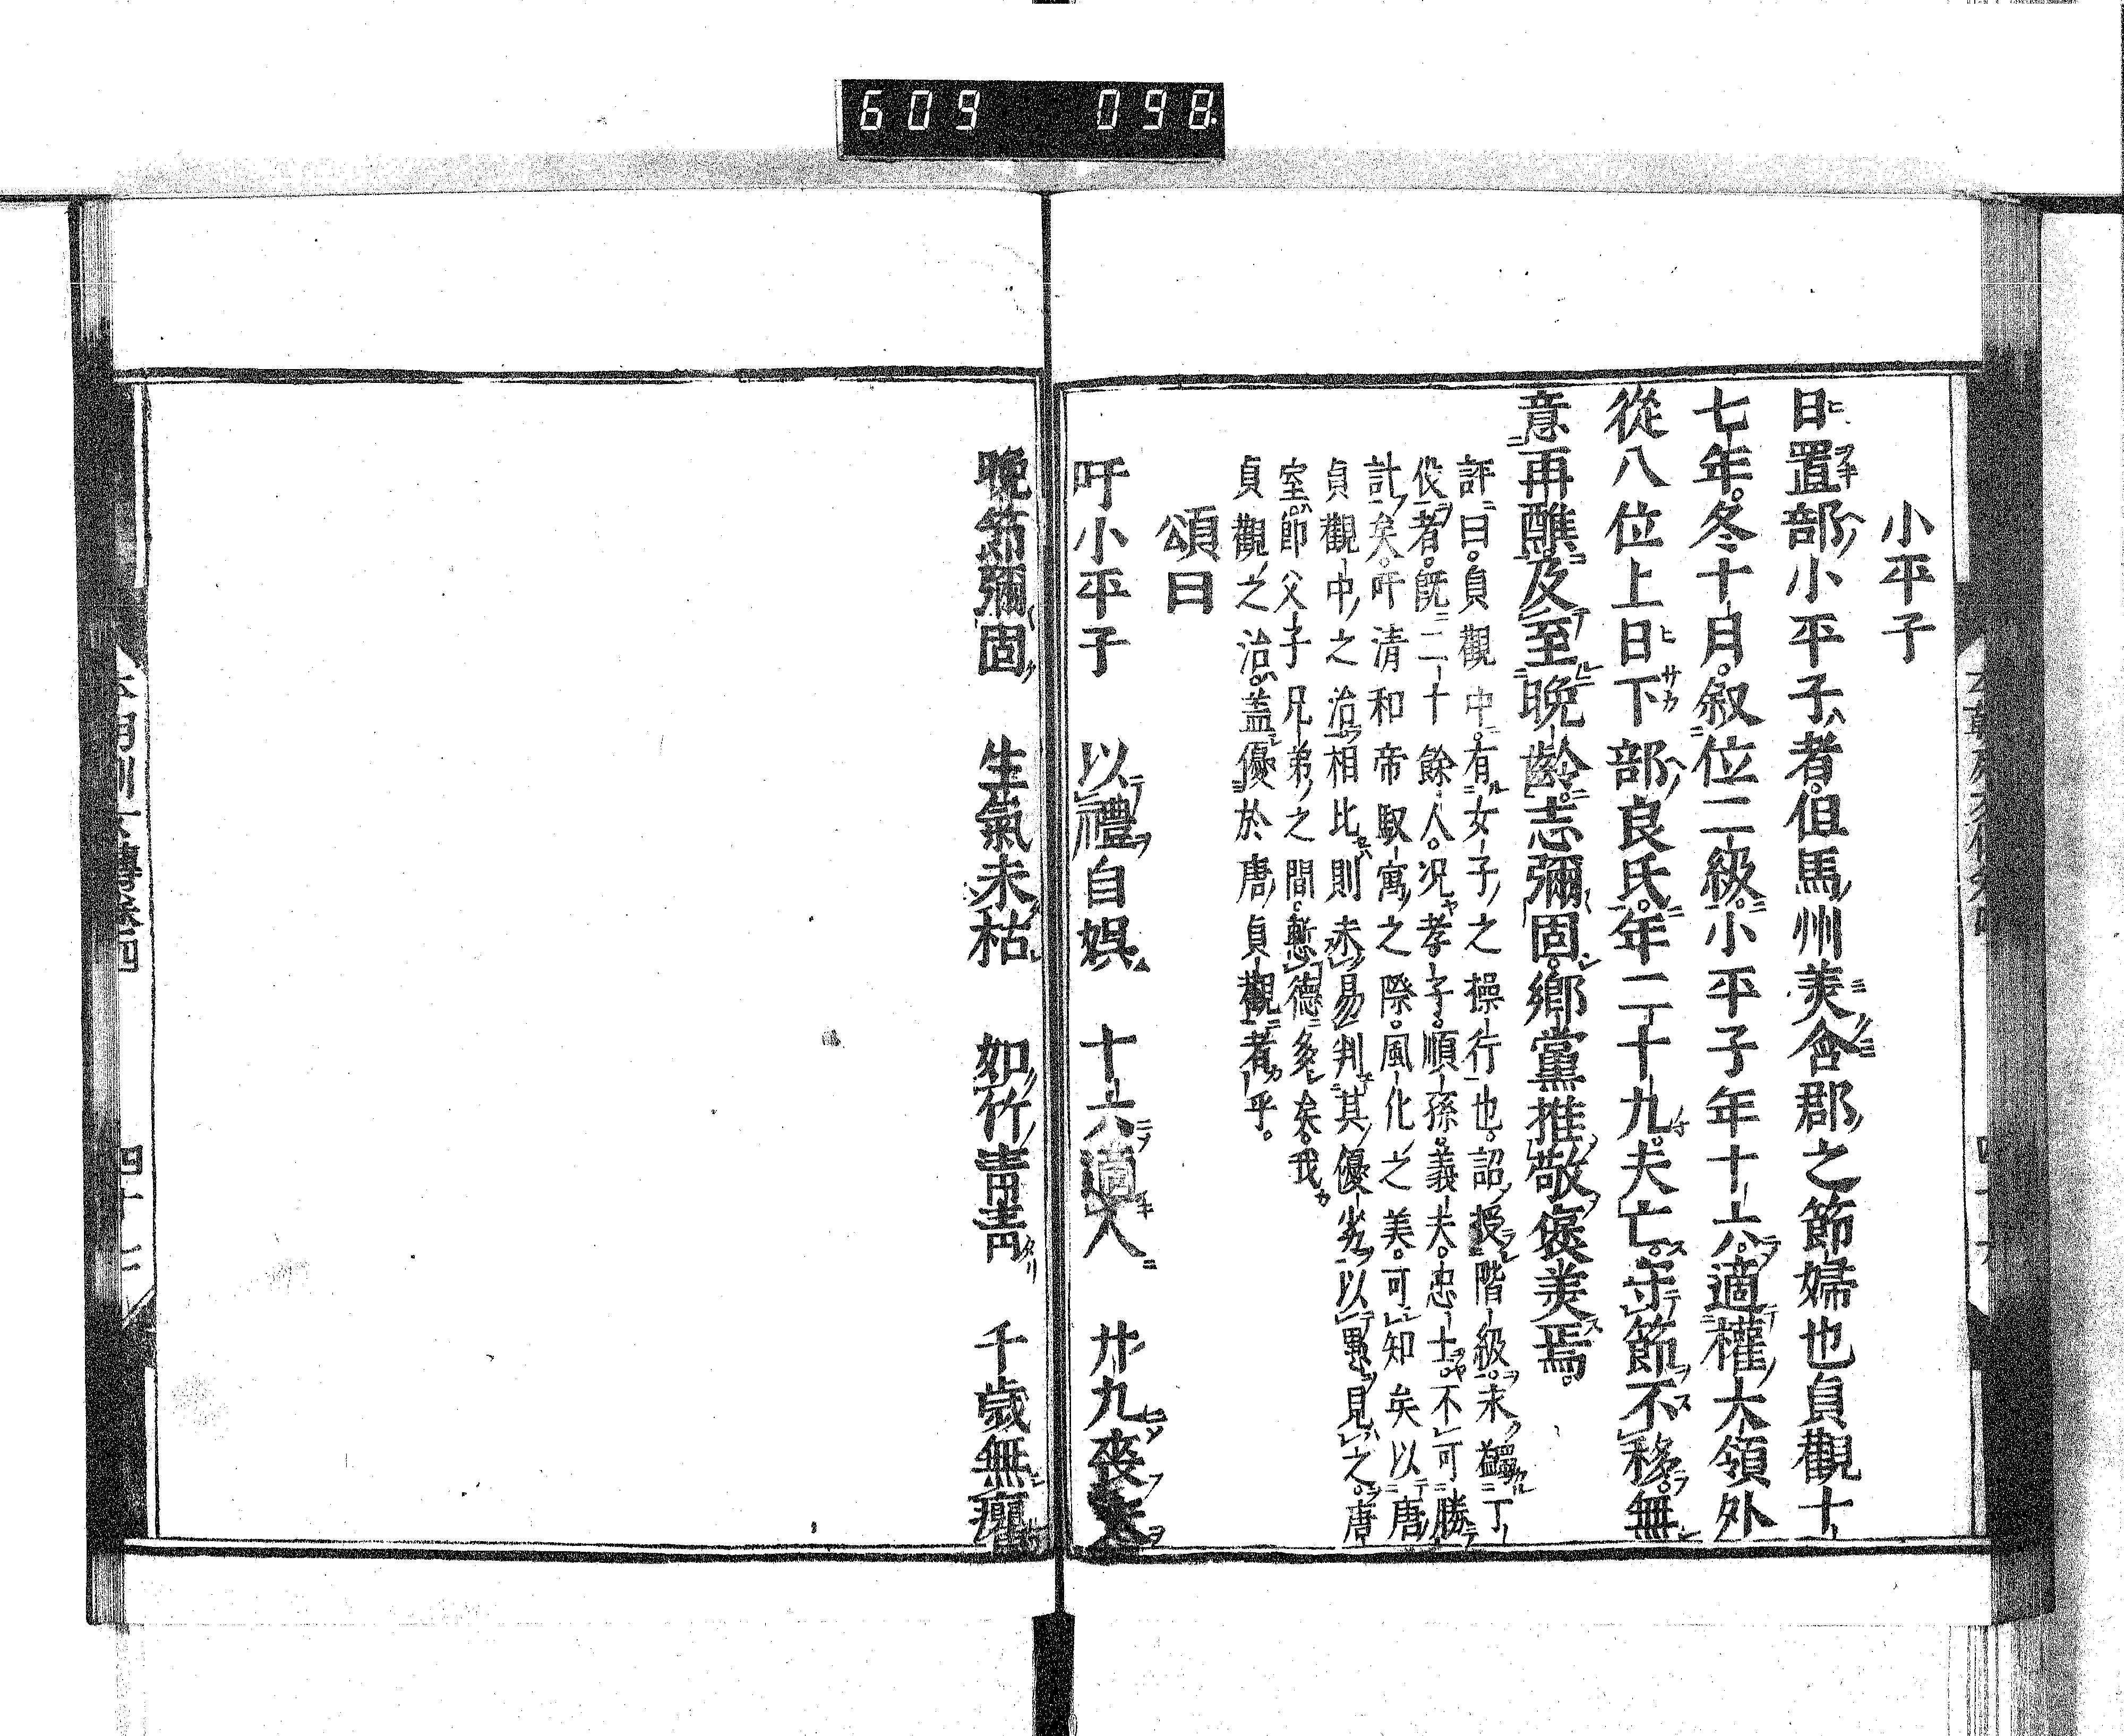 609 098
小平子
日置部小平子者但馬州美含郡之節婦也貞觀十
七年冬十月叙位二級小平子年十六適權大領外
從八位上日下部良氏年二十九夫亡守節不移無
意再醮及至晩齡志彌固鄉黨推敬褒美焉
評曰貞觀中有女子之操行也詔授階級未獨丁
伇者既二十餘人况孝子順孫義夫忠士不可勝
計矣吁清和帝馭寓之際風化之美可知矣以唐
貞觀中之治相比則未易判其優劣以愚見之唐
室節父子兄弟之間慙德多矣我
貞觀之治蓋優於唐貞觀者乎
頌曰
吁小平子 以禮自娯 十六適人 廾九喪夫
晩節彌固 生氣未枯 如竹靑靑 千歲無癯